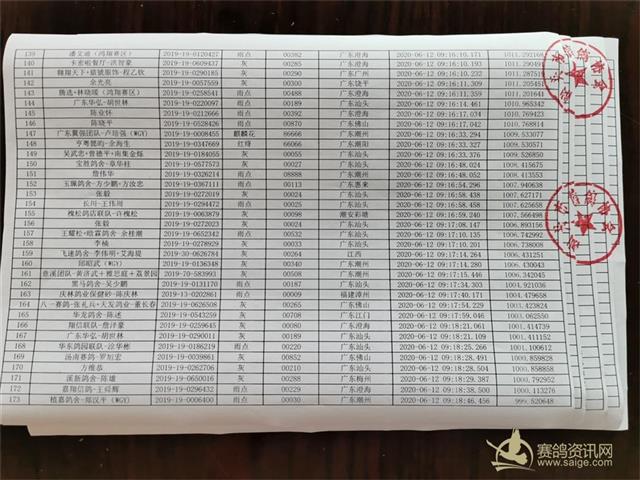 139 潘文通（鸿翔赛区） 2019-19-0120427 雨点 00382 广东澄海 2020-06-12 09:16:10.171 1011.292168
140 卡密啦餐厅-洪智豪 2019-19-0609437 灰 00285 广东澄海 2020-06-12 09:16:10.232
141 翱翔天下+猿號服饰-程乙钦 2019-19-0290185 灰 00091 广东广州 2020-06-12 09:16:10.232 1011.287519
142 余光亮 2019-19-0222910 灰 00041 广东饶平 2020-06-12 09:16:11.309 1011.205451
143 腾选+林晓瑶（鸿翔赛区） 2019-19-0258541 雨点 00048 广东澄海 2020-06-12 09:16:11.350 1011.201640
144 广东华弘-胡世林 2019-19-0220097 雨点 00189 广东汕头 2020-06-12 09:16:14.461 1010.965342
145 陈业怀 2019-19-0212666 雨点 00392 广东汕头 2020-06-12 09:16:17.034 1010.769423
146 陈晓平 2019-19-0222239 雨点 00064 广东佛山 2020-06-12 09:16:17.074 1010.768814
147 广东翼强团队-卢培强（WGY） 2019-19-0008455 麒麟花 86666 广东潮州 2020-06-12 09:16:33.294 1009.533077
148 亨粤昆昀-佘海生 2019-19-0347669 红绛 66666 广东潮阳 2020-06-12 09:16:33.294 1009.533077
149 吴武忠+曾德平+南集金烁 2019-19-0184055 灰 00055 广东汕头 2020-06-12 09:16:33.376 1009.526850
150 宝胜鸽舍-章华柱 2019-19-0577573 灰 00030 广东汕头 2020-06-12 09:16:48.024 1008.415675
151 詹伟华 2019-19-0326214 雨点 08888 广东潮州 2020-06-12 09:16:48.151 1008.413553
152 玉佩鸽舍-方少鹏+方汝忠 2019-19-0367111 雨点 00113 广东惠来 2020-06-12 09:16:54.296 1007.940638
153 张毅 2019-19-0272023 灰 00024 广东汕头 2020-06-12 09:16:58.438 1007.627171
154 长川-王伟周 2019-19-0294472 雨点 00015 广东汕头 2020-06-12 09:16:58.458 1007.625658
155 槐松鸽店联队-许槐松 2019-19-0063879 灰 00098 潮安彩塘 2020-06-12 09:16:59.240 1007.566498
156 张毅 2019-19-0272023 灰 00024 广东汕头 2020-06-12 09:17:05.251 1007.112023
157 王耀松+晗霖鸽舍-余桂潮 2019-19-0532342 雨点 00032 广东汕头 2020-06-12 09:17:10.135 1006.742992
158 李楠 2019-19-0278929 灰 00033 广东汕头 2020-06-12 09:17:10.201 1006.738008
159 飞速鸽舍-李伟明+艾海堤 2019-30-0626784 灰 00034 江西 2020-06-12 09:17:14.264 1006.431251
160 邱昭武（WGY） 2019-19-0163430 灰 00208 广东潮州 2020-06-12 09:17:14.280 1006.430043
161 意溪团队-黄济武+雅思庭+荔景园 2019-70-583993 灰 00508 广东潮州 2020-06-12 09:17:15.446 1006.342045
162 黑马鸽舍-吴少鹏 2019-19-0131170 雨点 00187 广东汕头 2020-06-12 09:17:39.534 1004.523905
163 庆林鸽业保健砂-陈庆林 2019-13-0202861 雨点 00009 福建漳州 2020-06-12 09:17:40.171 1004.479658
164 八一赛鸽-张礼兵+天友鸽业-董长春 2019-19-0626508 灰 00708 广东广州 2020-06-12 09:17:54.968 1003.664950
165 华龙鸽舍-陈述 2019-19-0543259 灰 00078 广东江门 2020-06-12 09:17:59.046 1003.062550
166 翔信联队-詹泽豪 2019-19-0259645 灰 00080 广东澄海 2020-06-12 09:18:21.061 1001.414739
167 广东华弘-胡世林 2019-19-0290011 灰 00189 广东汕头 2020-06-12 09:18:21.092 1001.412152
168 华东鸽园联队-涂华彬 2019-19-0186219 雨点 00220 广东汕头 2020-06-12 09:18:25.266 1001.100159
169 汤南赛鸽-罗旭宏 2019-19-0039861 灰 00852 广东佛山 2020-06-12 09:18:28.491 1000.859828
170 方维恭 2019-19-0262706 灰 00021 广东汕头 2020-06-12 09:18:28.491 1000.858858
171 溪新鸽舍-陈雄 2019-19-0650016 灰 00288 广东梅州 2020-06-12 09:18:29.387 1000.792952
172 嘉翔信鸽-王舜辉 2019-19-0296432 雨点 00229 广东澄海 2020-06-12 09:18:38.500 1000.113276
173 植嘉鸽舍-郑汉平（WGY） 2019-19-0006400 雨点 00030 广东潮州 2020-06-12 09:18:46.455 999.520648
赛鸽资讯网
www.saige.com